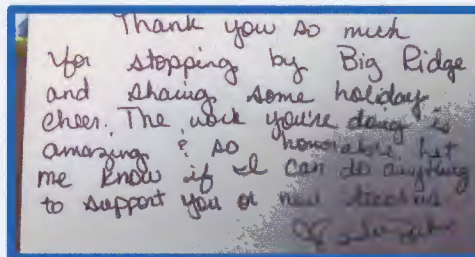 Thank you so much
for stopping by Big Ridge
and sharing some holiday
cheer. The work you're doing is
amazing & so honorable. Let
me know if I can do anything
to support you or new teachers